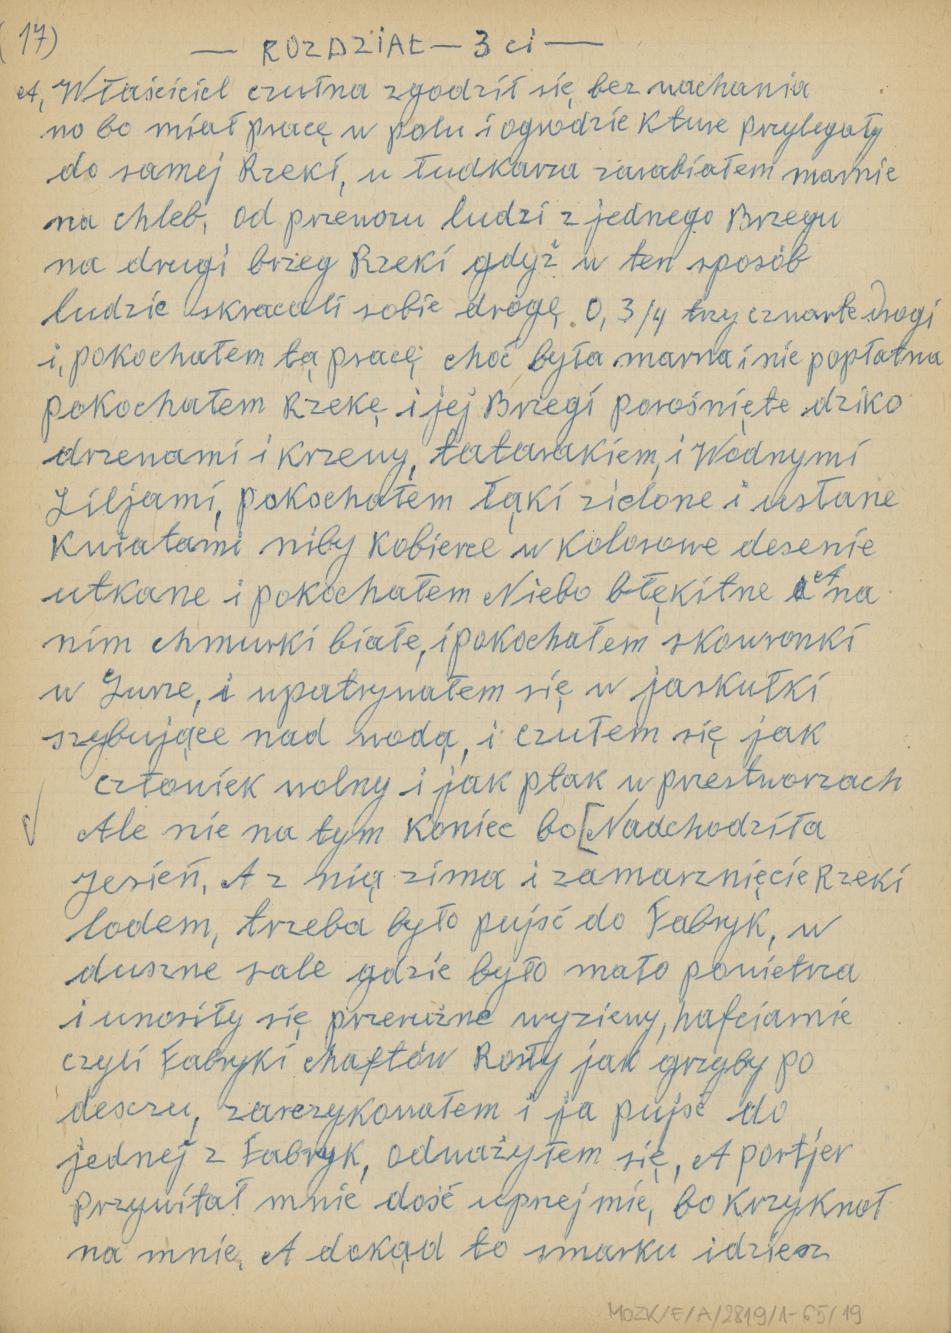 (17)
— ROZDZIAŁ — 3 ci —
A, Właściciel czułna zgodził się bez wachania
no bo miał pracę w polu i ogrodzie kture przylegały
do samej Rzeki, u łudkarza zarabiałem marnie
na chleb, od przewozu ludzi z jednego Brzegu
na drugi brzeg Rzeki gdyż w ten sposób
ludzie skracali sobie drogę. O, 3/4 trzy czwarte drogi
i, pokochałem tą pracę choć była marna i nie popłatna
pokochałem Rzekę i jej Brzegi porośnięte dziko
drzewami i krzewy, tatarakiem, i Wodnymi
Liljami, pokochałem łąki zielone i usłane
kwiatami niby kobierce w kolorowe desenie
utkane i pokochałem Niebo błękitne A na
nim chmurki białe, i pokochałem skowronki
w Gurze, i wpatrywałem się w jaskułki
szybujące nad wodą, i czułem się jak
człowiek wolny i jak ptak w przestworzach
Ale nie na tym koniec bo [Nadchodziła
Jesień, A z nią zima i zamarznięcie Rzeki
lodem, trzeba było pujść do Fabryk, w
duszne sale gdzie było mało powietrza
i unosiły się przerużne wyziewy, hafciarnie
czyli Fabryki chaftów Rosły jak grzyby po
deszczu, zaryzykowałem i ja pujść do
jednej z Fabryk, odważyłem się, A portjer
przywitał mnie dość uprzejmie, bo krzyknoł
na mnie, A dokąd to smarku idziesz
MOZK/E/A/2819/1-65/19